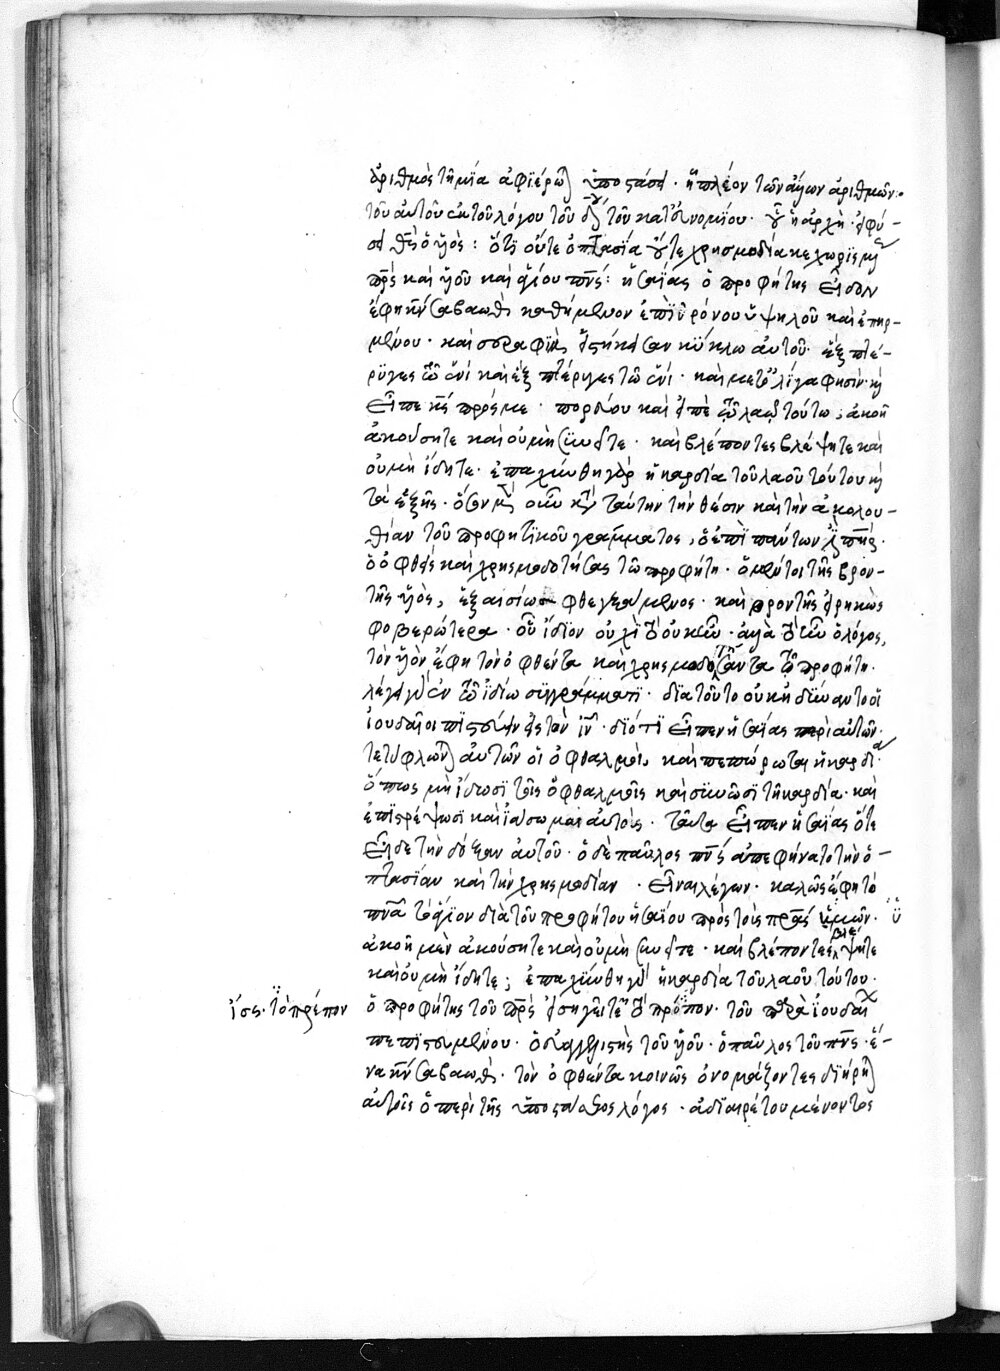 ἀριθμὸς τῆ μϊᾶ ἀφϊέρωται ὑποστάσει · ἢ πλέον τῶν ἁγίων ἀριθμῶν ·
τοῦ αὐτοῦ ἐκ τοῦ λόγου τοῦ τοῦ κατ' εὐνομίου · οὗ ἡ ἀρχὴ · ἐφύ-
σει θεὸς ὁ υἱὸς : ὅτϊ οὔτε ὀπτασία οὔτε χρησμωδία κεχώρϊσμένα
πρς καὶ υἱοῦ καὶ ἁγίου πνς : ἡσαΐας ὁ προφήτης εἶδον
ἔφη κν σαβαωθ καθήμενον ἐπὶ θρόνου ὑψηλοῦ καὶ ἐπηρ-
μένου · καὶ σεραφὶμ εἱστήκεισαν κύκλω αὐτοῦ · ἓξ πτέ-
ρυγες τῶ ἑνὶ καὶ ἓξ πτέρυγες τῶ ἑνί · καὶ μετ' ὀλίγα φησὶν · καὶ
εἶπε κς πρός με · πορεύου καὶ εἰπὲ τῶ λαῶ τούτω · ἀκοῆ
ἀκούσητε καὶ οὐ μὴ συνῆτε · καὶ βλέποντες βλέψητε καὶ
οὐ μὴ ἴδητε · ἐπαχύνθη γὰρ ἡ καρδία τοῦ λαοῦ τούτου καὶ
τὰ ἑξῆς · ὅσον μὲν οὖν κατὰ ταύτην τὴν θέσιν καὶ τὴν ἀκολου-
θίαν τοῦ προφητϊκοῦ γράμματος, ὁ ἐπὶ πάντων ἐστὶ πηρ ·
ὁ ὀφθεὶς καὶ χρησμοδοτήσας τῶ προφήτη · ὁ μέντοι τῆς βρον-
τῆς υἱὸς, ἐξαισίως φθεγξάμενος · καὶ βροντῆς εἰρηκὼς
φοβερώτερα · οὐκ ἴδϊον οὐχὶ δὲ οὐκ ὢν · ἀλλὰ θυ ὢν ὁ λόγος,
τὸν υἱὸν ἔφη τὸν ὀφθέντα καὶ χρησμοδοτήσαντα τῶ προφήτη ·
λέγει γὰρ ἐν τῶ ϊδίω συγγράμματϊ · διὰ τοῦτο οὐκ ἠδύναντο οἱ
ἰουδαῖοι πϊστεύειν εἰς τὸν ιν · δϊότϊ εἶπεν ἡσαΐας περὶ αὐτῶν ·
τετύφλωνται αὐτῶν οἱ ὀφθαλμοὶ, καὶ πεπώρωται ἡ καρδία ·
ὅπως μὴ ἴδωσϊ τοῖς ὀφθαλμοῖς καὶ συνῶσϊ τῆ καρδία · καὶ
ἐπϊστρέψωσϊ καὶ ἰάσωμαι αὐτοὺς · ταῦτα εἶπεν ἡσαΐας ὅτε
εἶδε τὴν δόξαν αὐτοῦ · ὁ δὲ παῦλος πνς ἀπεφήνατο τὴν ὀ-
πτασίαν καὶ τὴν χρησμωδίαν · εἶναι λέγων · καλῶς ἔφη τὸ
πνα τὸ ἅγϊον διὰ τοῦ προφήτου ἡσαΐου πρὸς τοὺς πρας ἡμῶν · ὑ
ἀκοῆ μὲν ἀκούσητε καὶ οὐ μὴ συνῆτε · καὶ βλέποντες βλέψητε
καὶ οὐ μὴ ἴδητε ; ἐπαχύνθη γὰρ ἡ καρδία τοῦ λαοῦ τούτου ·
ἴσως · τὸ πρέπον
ὁ προφήτης τοῦ πρς εἰσηγεῖται τὸ πρόπον · τοῦ παρὰ ἰουδαίοις
πεπϊστευμένου · ὁ εὐαγγελϊστὴς τοῦ υἱοῦ · ὁ παῦλος τοῦ πνς · ἕ-
να κν σαβαωθ · τὸν ὀφθέντα κοινῶς ὀνομάζοντες δϊήρηται
αὐτοῖς ὁ περὶ τῆς ὑποστάσεως λόγος · ἀδϊαιρέτου μένοντος